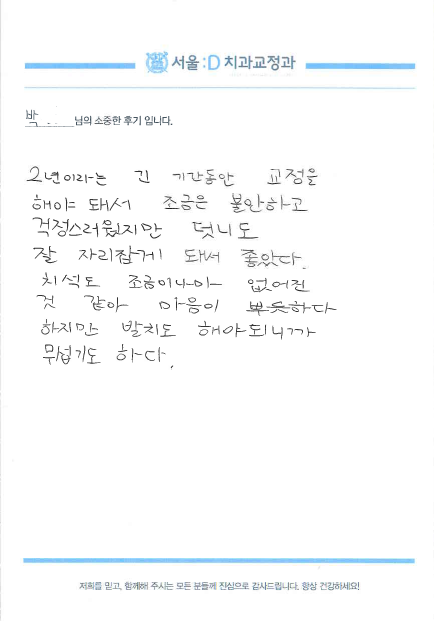 서울:D 치과교정과
박 님의 소중한 후기 입니다.
2년이라는 긴 기간동안 교정을
해야 돼서 조금은 불안하고
걱정스러웠지만 덧니도
잘 자리잡게 돼서 좋았다.
치석도 조금이나마 없어진
것 같아 마음이 뿌듯하다
하지만 발치도 해야되니까
무섭기도 하다.
저희를 믿고, 함께해 주시는 모든 분들께 진심으로 감사드립니다. 항상 건강하세요!